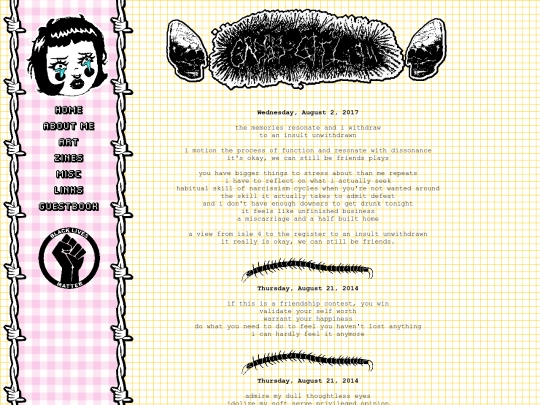 HOME
ABOUT ME
ART
ZINES
MISC
LINKS
GUESTBOOK
BLACK LIVES
MATTER
Wednesday, August 2, 2017
the memories resonate and i withdraw
to an insult unwithdrawn
i motion the process of function and resonate with dissonance
it's okay, we can still be friends plays
you have bigger things to stress about than me repeats
i have to reflect on what i actually seek
habitual skill of narcissism cycles when you're not wanted around
the skill it actually takes to admit defeat
and i don't have enough downers to get drunk tonight
it feels like unfinished business
a miscarriage and a half built home
a view from isle 4 to the register to an insult unwithdrawn
it really is okay, we can still be friends.
Thursday, August 21, 2014
if this is a friendship contest, you win
validate your self worth
warrant your happiness
do what you need to do to feel you haven't lost anything
i can hardly feel it anymore
Thursday, August 21, 2014
admire my dull thoughtless eyes
idolize my soft nerve privileged opinion